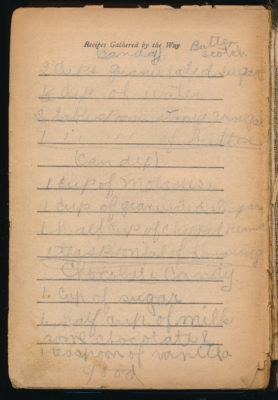 Recipes Gathered by the Way
Candy Butter
scotch
2 cups granulated sugar
½ cup of water
2 tablespoons vinegar
1 of butter
(Candy)
1 cup of Molasses
1 cup of granulated sugar
1 small cup of
1 teaspoon of
Chocolate Candy
1 cup of sugar
1 half cup of milk
some chocolate &
1 teaspoon of vanilla
good